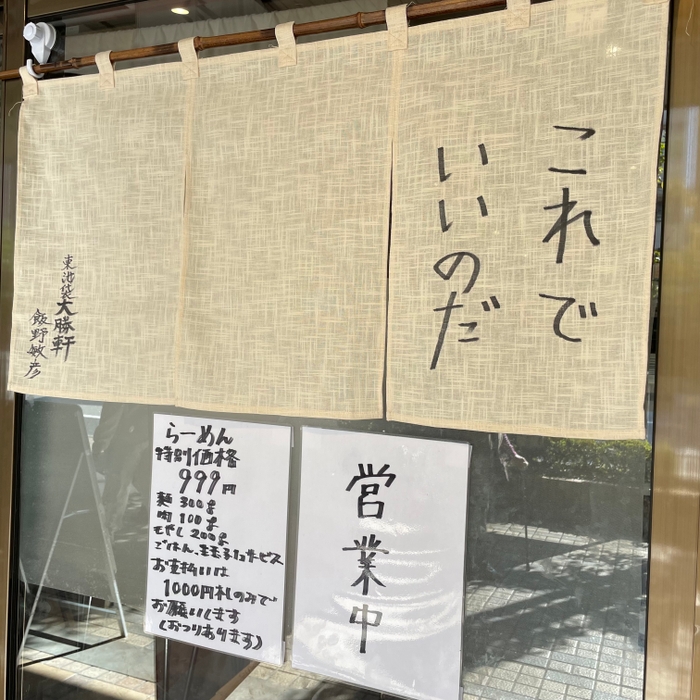 これで
いいのだ
東池袋大勝軒
飯野敏彦
らーめん
特別価格
999円
麺 300g
肉 100g
もやし 200g
ごはん、生玉子1コサービス
お支払いは
1000円札のみで
お願いします
(おつりあります)
営業中